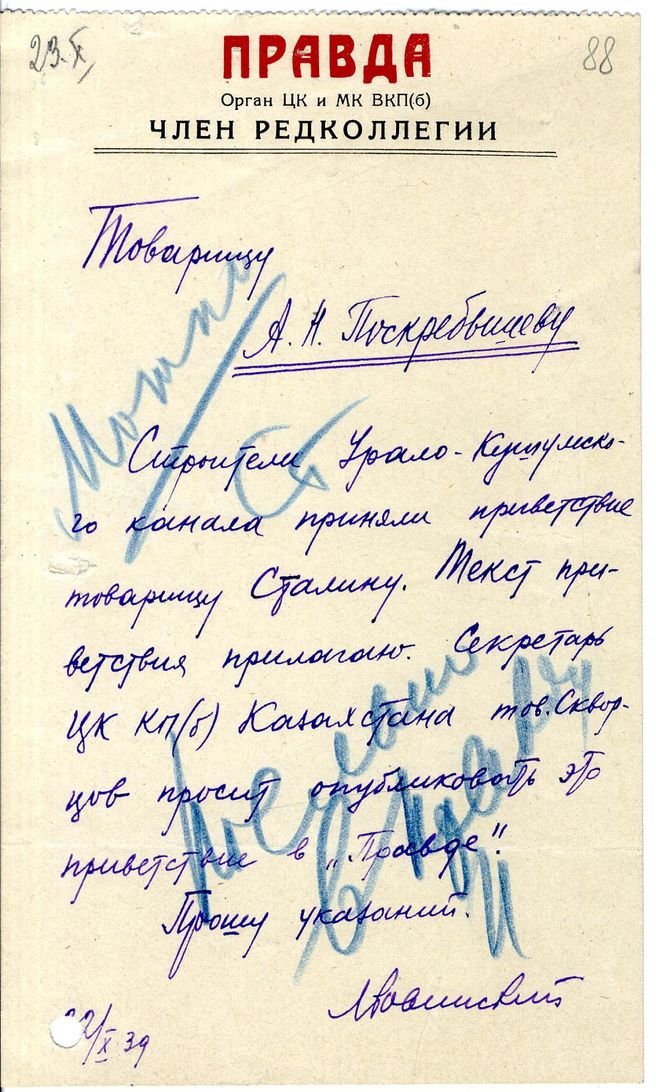 23.X,
88
ПРАВДА
Орган ЦК и МК ВКП(б)
ЧЛЕН РЕДКОЛЛЕГИИ
Товарищу
А. Н. Поскребышеву
Можно
Строители Урало-Кушумско-
го канала приняли приветствие
товарищу Сталину. Текст при-
ветствия прилагаю. Секретарь
ЦК КП(б) Казахстана тов. Сквор-
цов просит опубликовать это
приветствие в „Правде".
Прошу указаний.
22/X 39